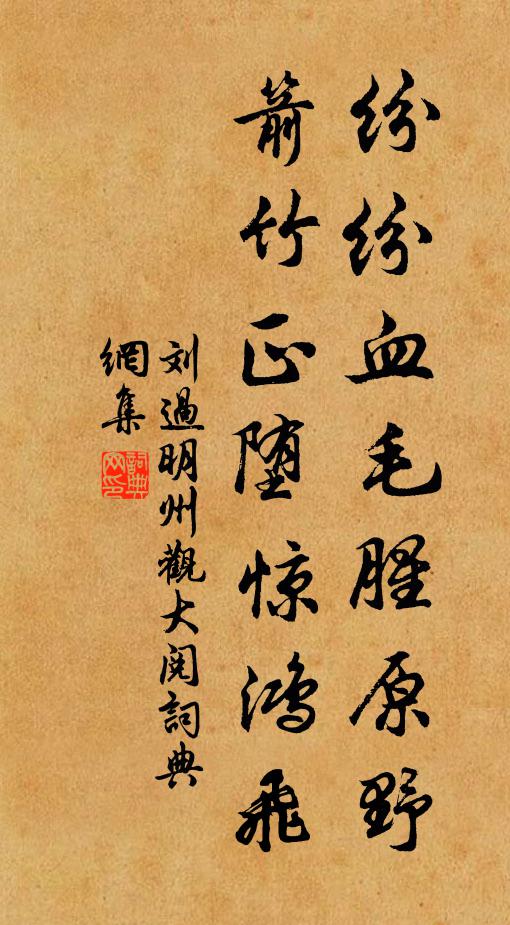 纷纷血毛腥原野
箭竹正堕惊鸿飛
刘過明州觀大阅詞典
網集
詞典
网印